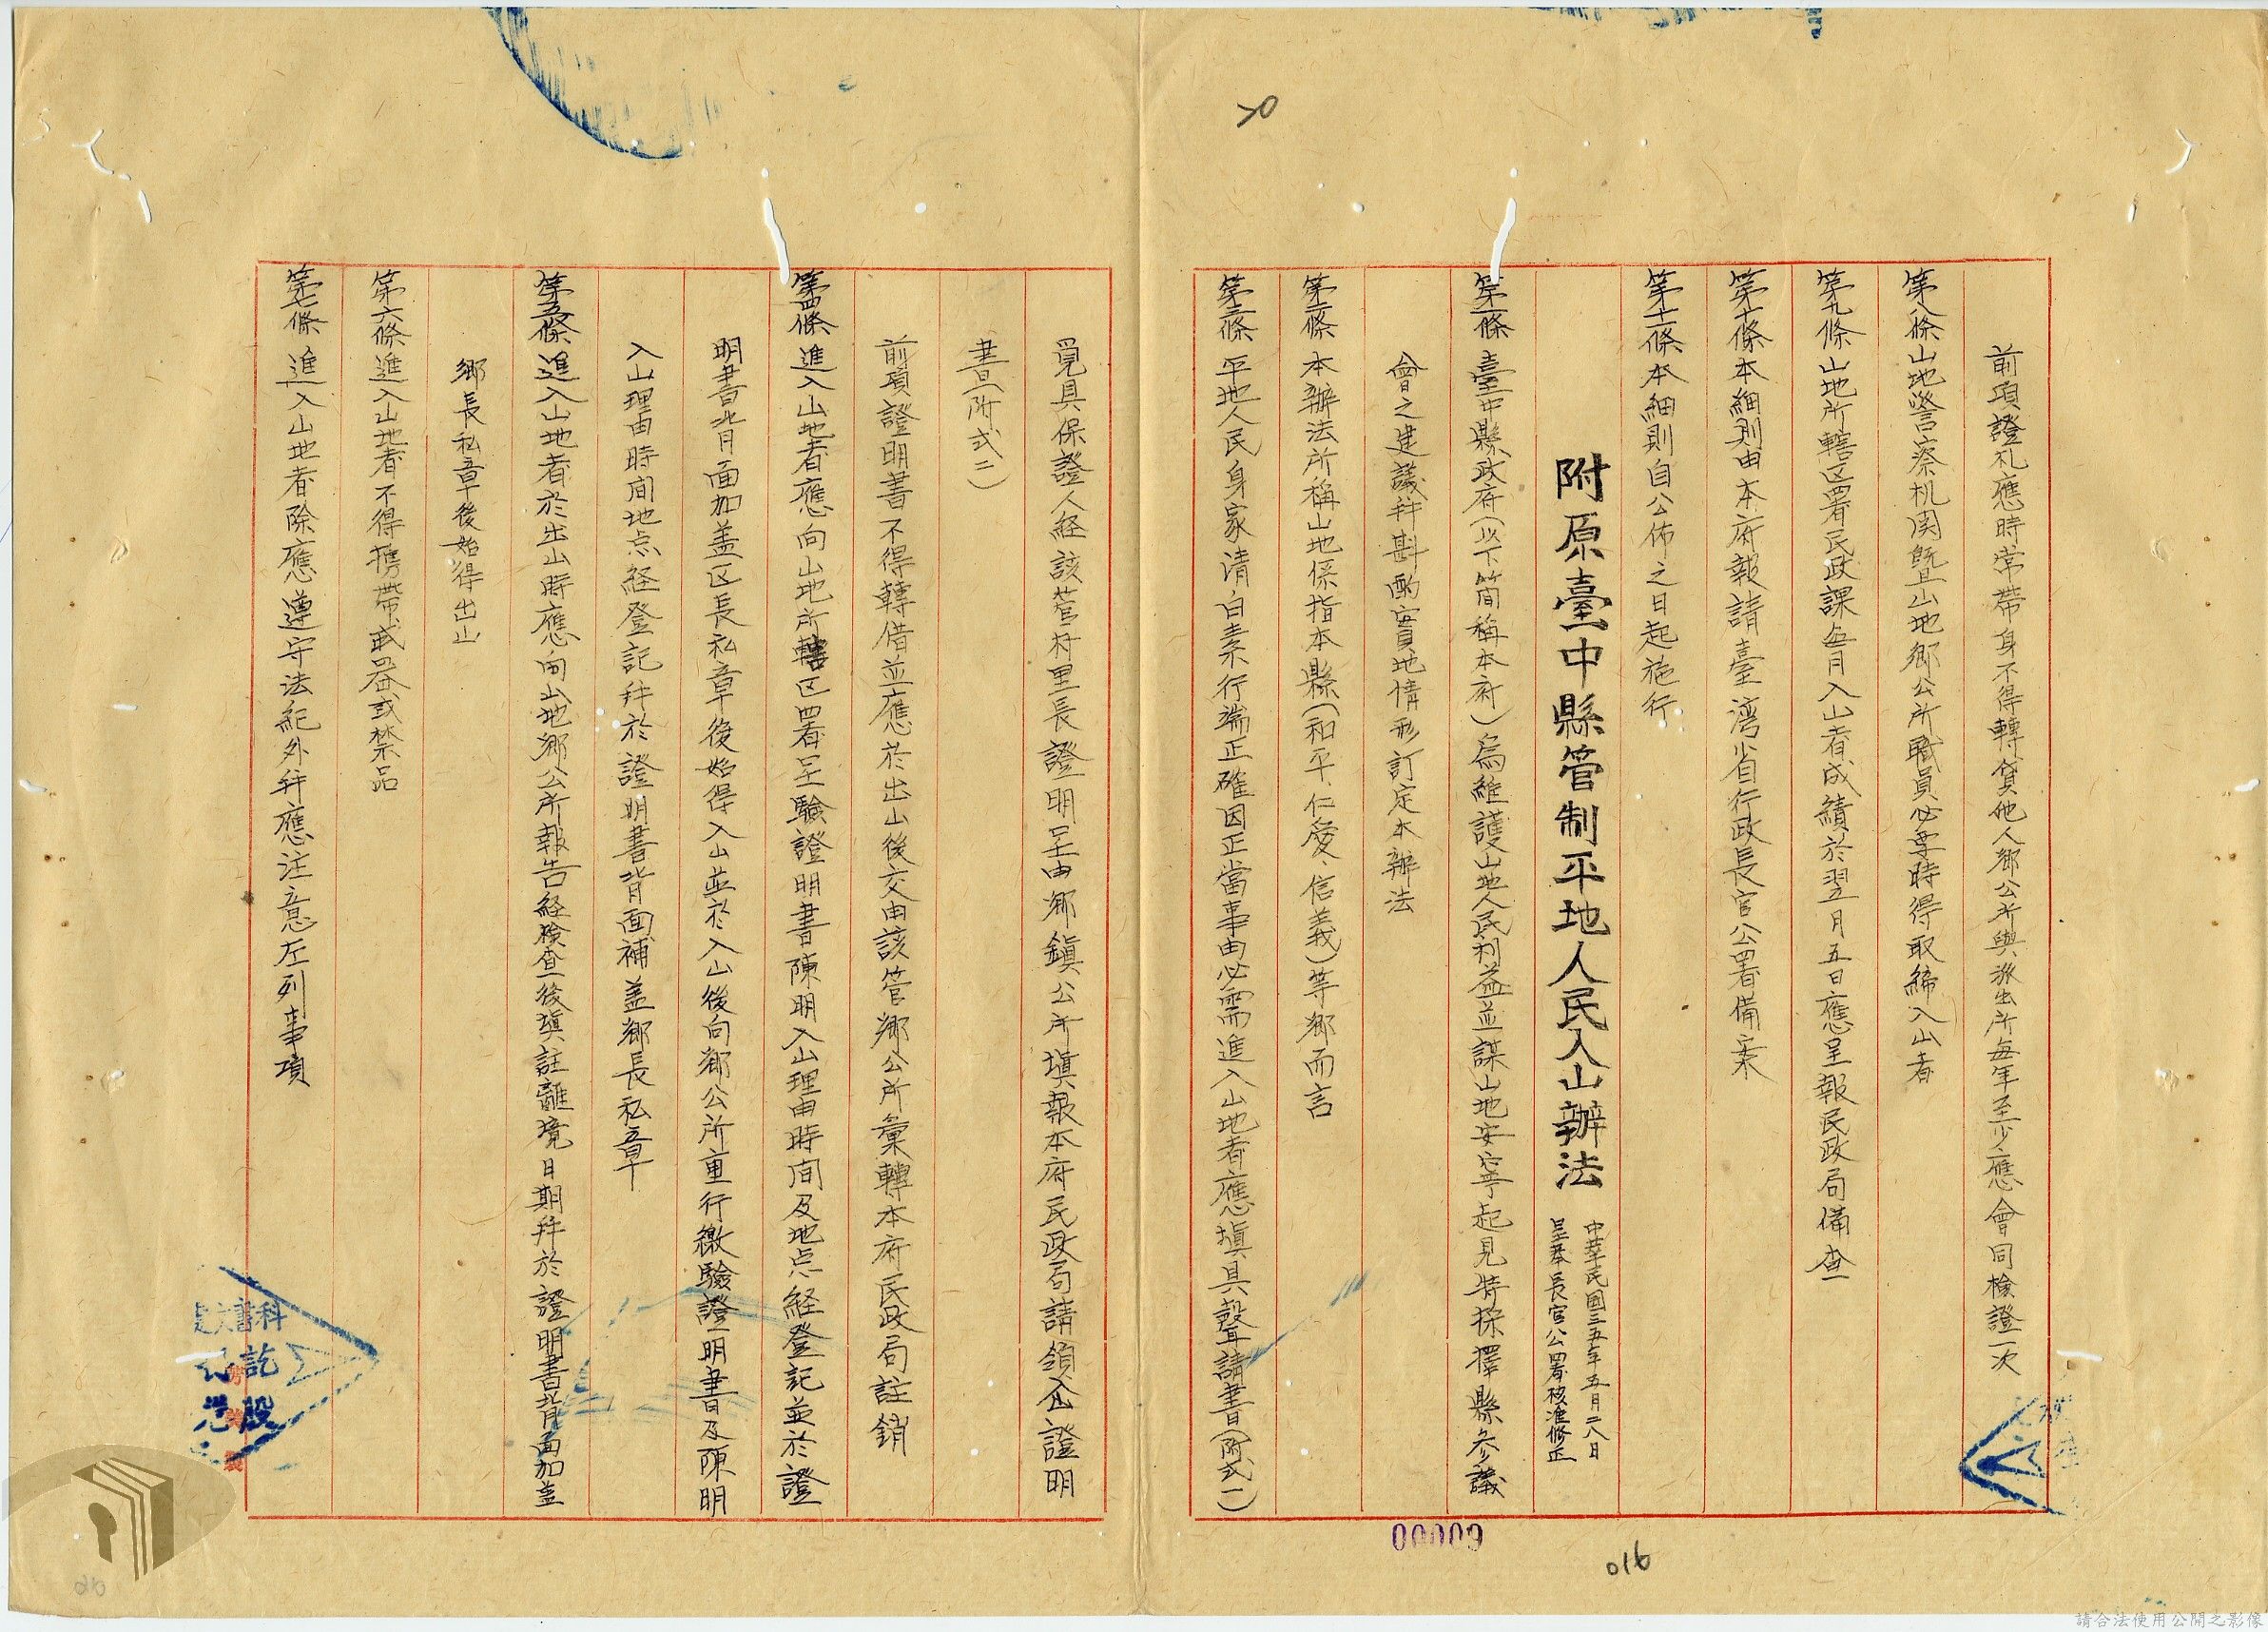 前項證札應時常帶身不得轉貸他人鄉公所與派出所每年至少應會同檢證一次
第八條山地警察机関暨山地鄉公所職員必要時得取締入山者
第九條山地所轄区署民政課每月入山者成績於翌月五日應呈報民政局備查
第十條本細則由本府報請臺湾省行政長官公署備案
第十一條本細則自公佈之日起施行
附原臺中縣管制平地人民入山辦法
中華民國三五年五月二八日
呈奉長官公署核准修正
第一條 臺中縣政府(以下简稱本府)為維護山地人民利益並謀山地安寧起見特採擇縣參議
會之建議并斟酌實地情形訂定本辦法
第二條 本辦法所稱山地係指本縣(和平、仁愛、信義)等鄉而言
第三條 平地人民身家清白素行端正確因正當事由必需進入山地者應填具聲請書(附式一)
覓具保證人経該管村里長證明呈由鄉鎮公所填報本府民政局請領入山證明
書(附式二)
前項證明書不得轉借並應於出山後交由該管鄉公所彙轉本府民政局註銷
第四條 進入山地者應向山地所轄区署呈驗證明書陳明入山理由時间及地点経登記並於證
明書背面加盖区長私章後始得入山並於入山後向鄉公所重行繳驗證明書及陳明
入山理由時间地点経登記并於證明書背面補盖鄉長私章
第五條 進入山地者於出山時應向山地鄉公所報告経檢查後填註離境日期并於證明書背面加盖
鄉長私章後始得出山
第六條 進入山地者不得携帶武器或禁品
第七條 進入山地者除應遵守法紀外并應注意左列事項
00009
016
請合法使用公開之影像